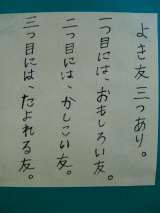 よき友三つあり。
一つ目には、おもしろい友。
二つ目には、かしこい友。
三つ目には、たよれる友。